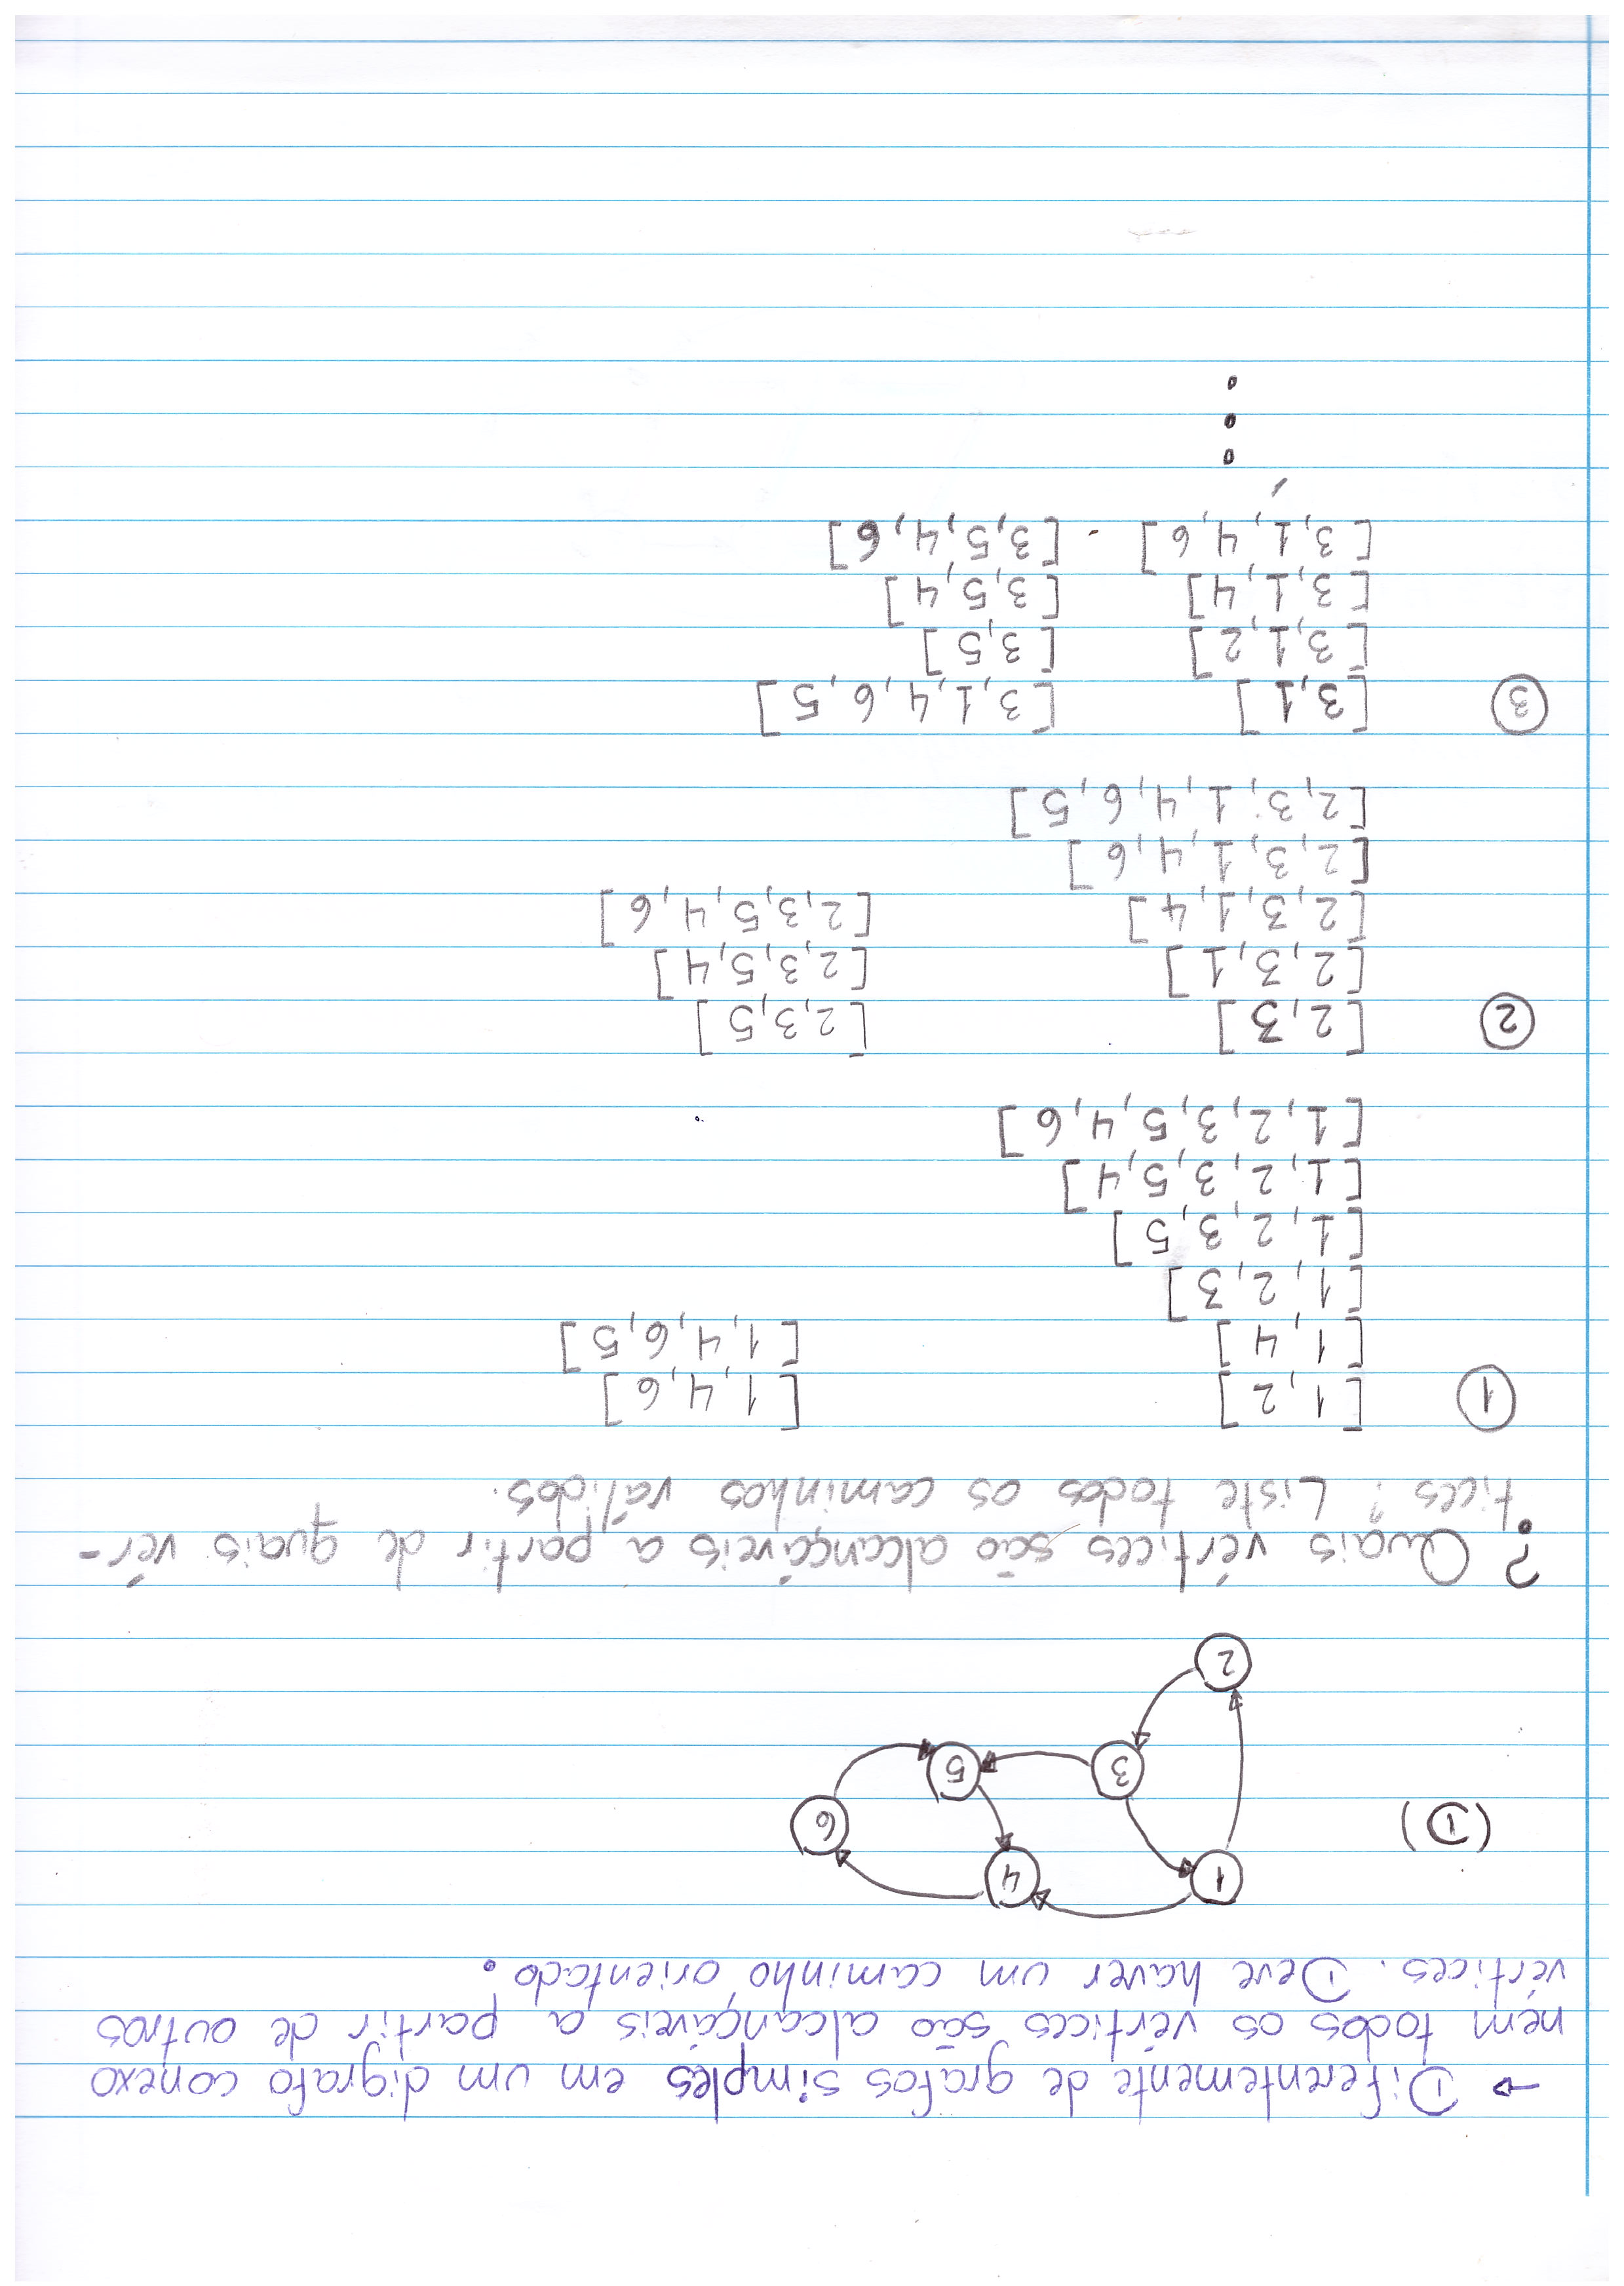 → Diferentemente de grafos simples em um digrafo conexo
nem todos os vértices são alcançáveis a partir de outros
vértices. Deve haver um caminho orientado.
(D)
1 4
6
3 5
2
? Quais vértices são alcançáveis a partir de quais vér-
tices? Liste todos os caminhos válidos.
1 [1,2] [1,4,6]
[1,4] [1,4,6,5]
[1,2,3]
[1,2,3,5]
[1,2,3,5,4]
[1,2,3,5,4,6]
2 [2,3] [2,3,5]
[2,3,1] [2,3,5,4]
[2,3,1,4] [2,3,5,4,6]
[2,3,1,4,6]
[2,3,1,4,6,5]
3 [3,1] [3,1,4,6,5]
[3,1,2] [3,5]
[3,1,4] [3,5,4]
[3,1,4,6] [3,5,4,6]